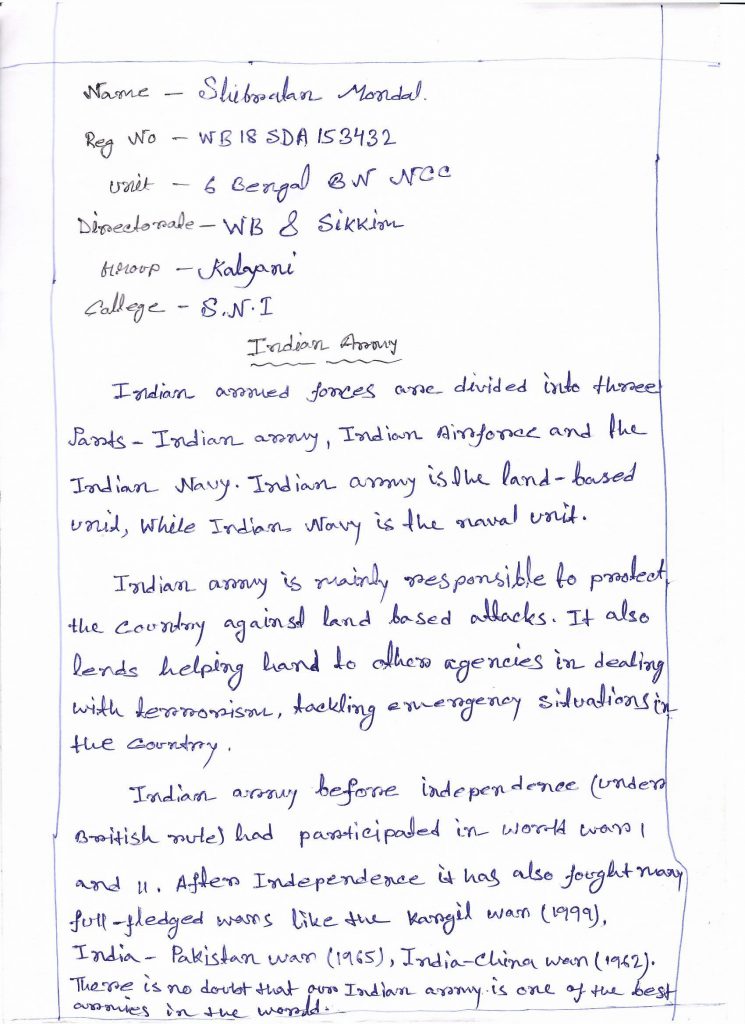 Name - Shibsalan Mondal.
Reg No - WB 18 SDA 153432
Unit - 6 Bengal BN NCC
Directorate - WB & Sikkim
Group - Kalyani
College - S.N.I
Indian Army
Indian armed forces are divided into three
Parts - Indian army, Indian Airforce and the
Indian Navy. Indian army is the land-based
unit, While Indian Navy is the naval unit.
Indian army is mainly responsible to protect
the country against land based attacks. It also
lends helping hand to other agencies in dealing
with terrorism, tackling emergency situations in
the country.
Indian army before independence (under
British rule) had participated in world war I
and II. After Independence it has also fought many
full-fledged wars like the Kargil war (1999),
India - Pakistan war (1965), India-China war (1962).
There is no doubt that our Indian army is one of the best
armies in the world.